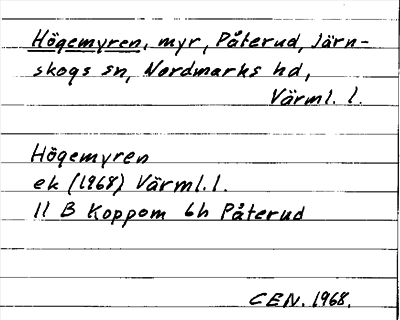 Högemyren, myr, Påterud, Järn-
skogs sn, Nordmarks hd,
Värml. l.
Högemyren
ek (1968) Värml. l.
11 B Koppom 6h Påterud
CEN. 1968.